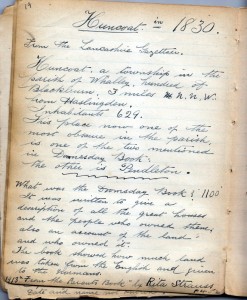 Huncoat in 1830.
From the Lancashire Gazetteer.
Huncoat - a township in the
parish of Whalley, hundred of
Blackburn, 3 miles N.N.W.
from Haslingden.
Inhabitants 629.
This place now one of the
most obscure in the parish
is one of the two mentioned
in Domesday Book.
The other is Pendleton.
What was the Domesday Book? 1100
It was written to give a
description of all the great houses
and the people who owned them;
also an account of the land
and who owned it.
The book showed how much land
was taken from the English and given
to the Normans.
From the Parents Book by Rita Strauss